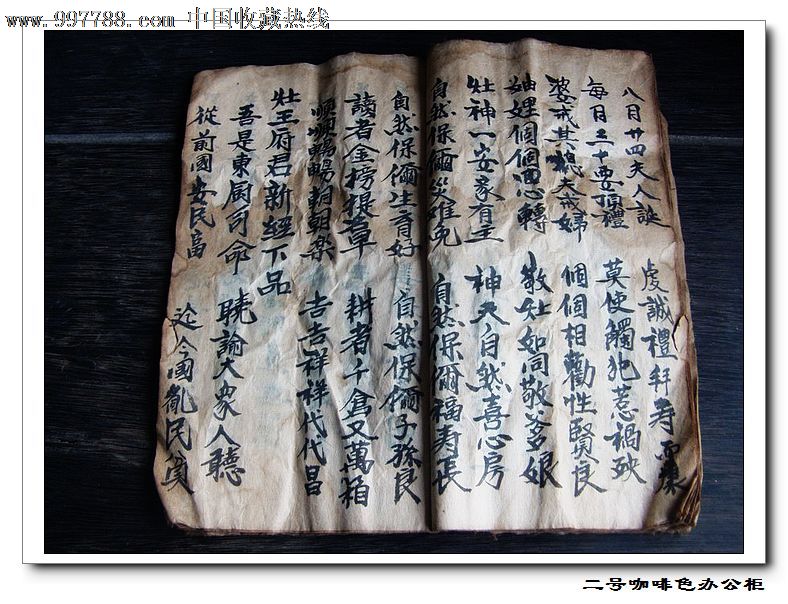 www.997788.com 中国收藏热线
八月廿四夫人誕 虔誠禮拜寿而康
每月三十要頂禮 莫使觸犯惹禍殃
婆戒其媳夫戒婦 個個相勸性賢良
妯娌個個回心轉 敬灶如同敬爹娘
灶神一安家有主 神天自然喜心房
自然保儞災难免 自然保爾福寿長
自然保儞生育好 自然保儞子孫良
讀者金榜章 耕者千倉又萬箱
順順暢暢朝朝樂 吉吉祥祥代代昌
灶王府君新經下品
吾是東厨司命 曉諭大眾人聽
從前國安民富 迄今國亂民貧
二号咖啡色办公柜